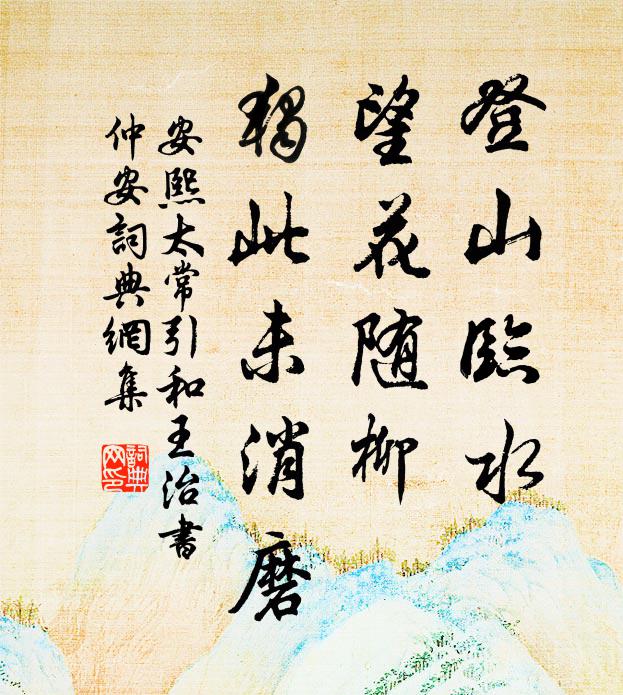 登山臨水
望花隨柳
獨此未消磨
安熙太常引和王治書
仲安詞典網集
詞典網印